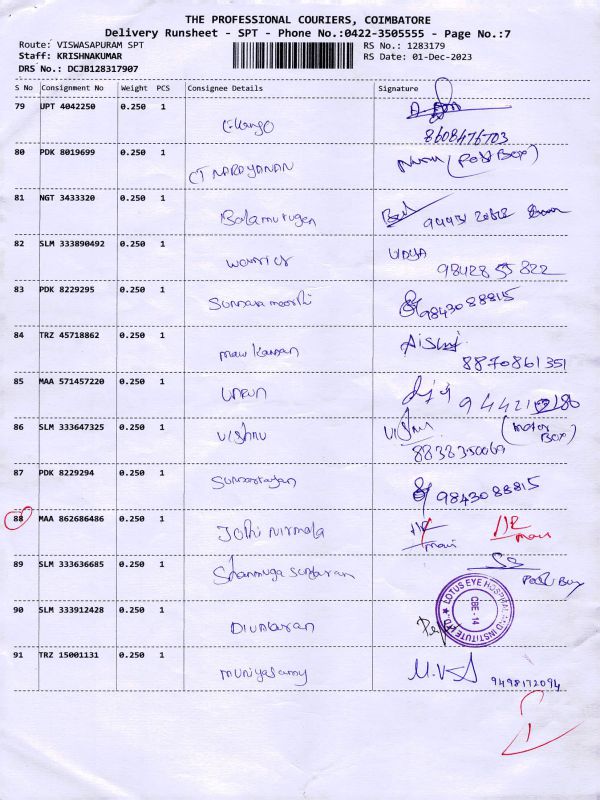 THE PROFESSIONAL COURIERS, COIMBATORE
Delivery Runsheet - SPT - Phone No.:0422-3505555 - Page No.:7
Route: VISWASAPURAM SPT RS No.: 1283179
Staff: KRISHNAKUMAR RS Date: 01-Dec-2023
DRS No.: DCJB128317907
S No Consignment No Weight PCS Consignee Details Signature
79 UPT 4042250 0.250 1
8608476703
80 PDK 8019699 0.250 1 CT NARAYANAN (Post Box)
81 NGT 3433320 0.250 1 Balamurugen
82 SLM 333890492 0.250 1 warrier VIDYA
98428 55 822
83 PDK 8229295 0.250 1 Sunnara moorthi 9843088815
84 TRZ 45718862 0.250 1
8870861351
85 MAA 571457220 0.250 1
86 SLM 333647325 0.250 1 Vishnu Vishnu (motor Box)
8838350069
87 PDK 8229294 0.250 1 9843088815
88 MAA 862686486 0.250 1 Jothi nirmala
89 SLM 333636685 0.250 1 Shanmuga Sundaram Post Box
90 SLM 333912428 0.250 1
LOTUS EYE HOSPITAL AND INSTITUTE LTD
CBE - 14
91 TRZ 15001131 0.250 1 muniyasamy 9498172094